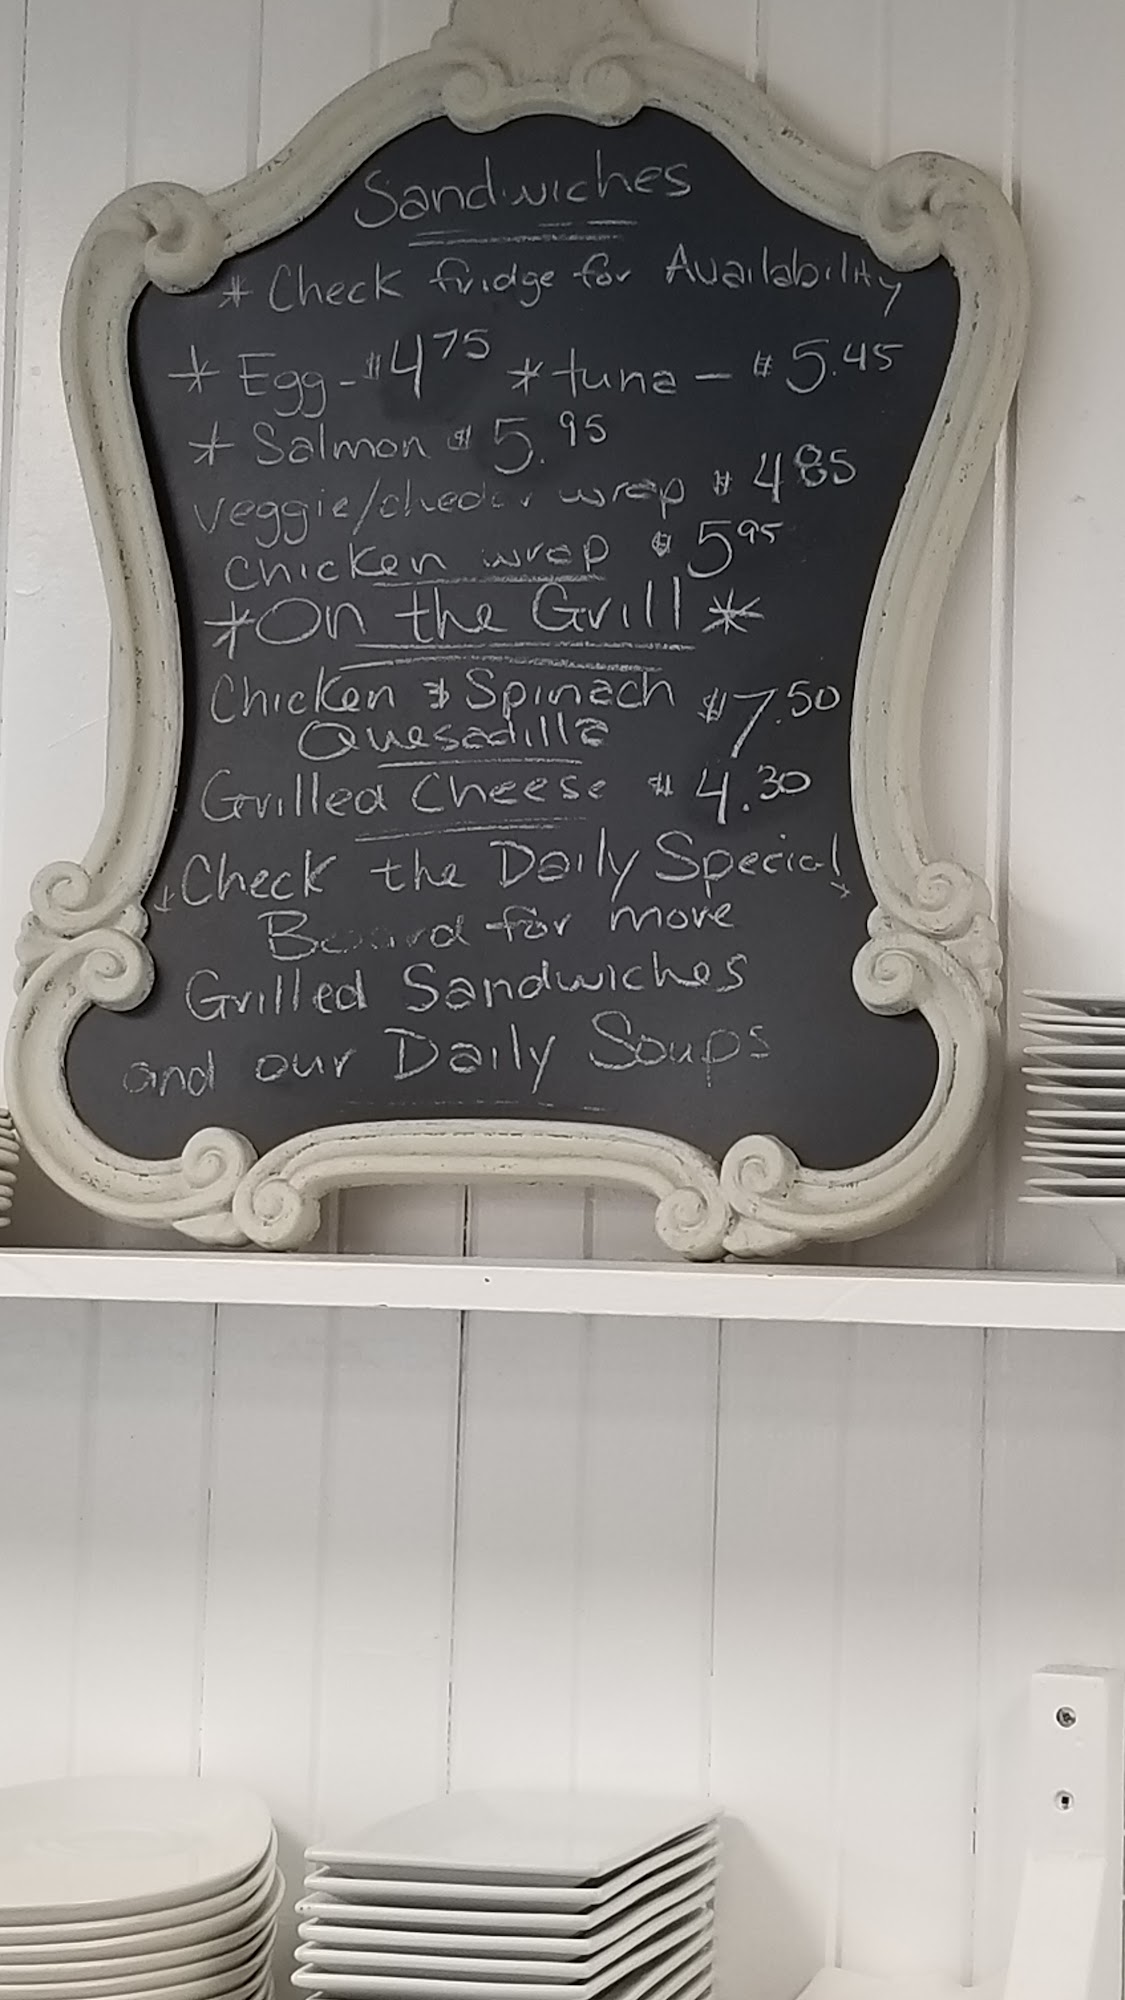 Sandwiches
* Check fridge for Availability
* Egg - $4 75 * tuna - $5.45
* Salmon $5.95
veggie/chedar wrap $4 85
Chicken wrap $5 95
*On the Grill*
Chicken & Spinach $7.50
Quesadilla
Grilled Cheese $4.30
Check the Daily Special
Board for more
Grilled Sandwiches
and our Daily Soups